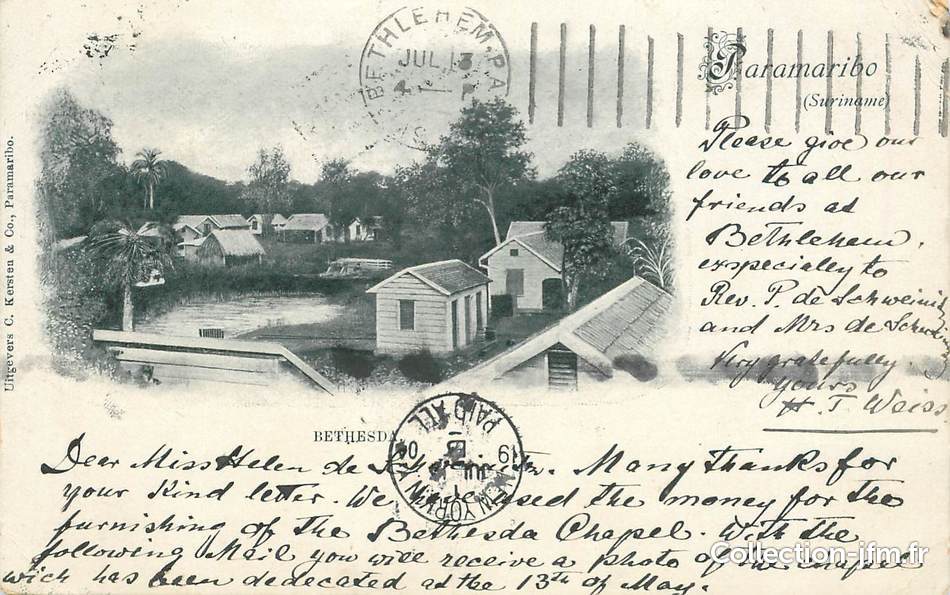 BETHLEHEM, PA
JUL 13
Paramaribo
(Suriname)
Uitgevers C. Kersten & Co., Paramaribo.
Please give our
love to all our
friends at
Bethlehem,
exspecially to
Rev. P. de Schweini
and Mrs de Schw
Very gratefully
yours
H. T. Weiss
BETHESDA
NEW YORK N.Y.
PAID ALL
19 04
JUL
Dear Miss Helen de. Many thanks for
your kind letter. We have used the money for the
furnishing of the Bethesda Chapel. With the
following Mail you will receive a photo of the chapel
wich has been dedecated at the 13th of May.
Collection-jfm.fr